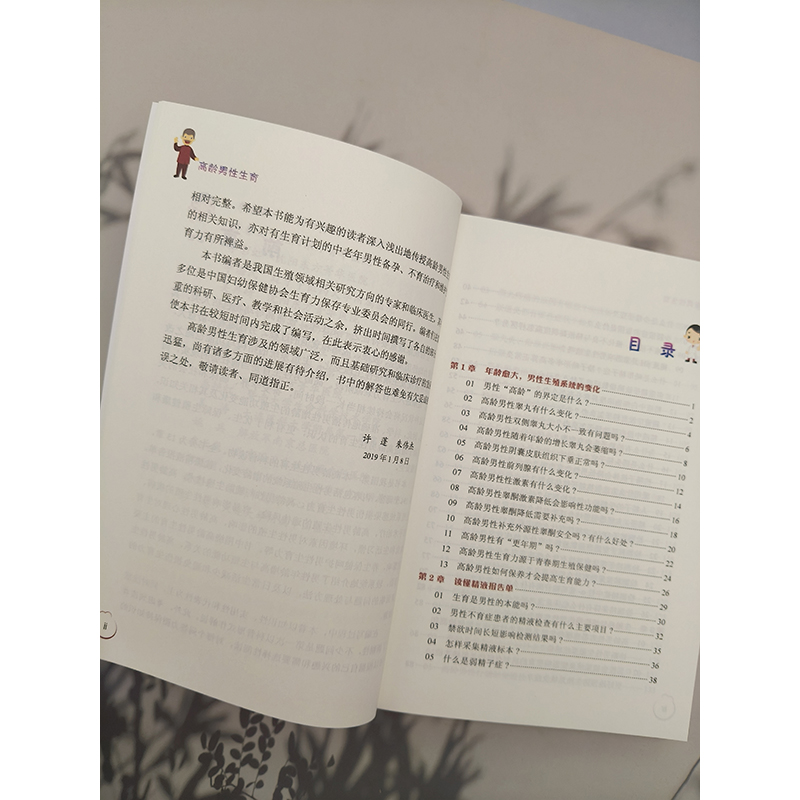 高龄男性生育
相对完整。希望本书能为有兴趣的读者深入浅出地传授高龄男性生
的相关知识，亦对有生育计划的中老年男性备孕、不育治疗和维护
育力有所裨益。
本书编者是我国生殖领域相关研究方向的专家和临床医生，
多位是中国妇幼保健协会生育力保存专业委员会的同行。编者们在
重的科研、医疗、教学和社会活动之余，挤出时间撰写了各自的
使本书在较短时间内完成了编写，在此表示衷心的感谢。
高龄男性生育涉及的领域广泛，而且基础研究和临床诊疗的
迅猛，尚有诸多方面的进展有待介绍，书中的解答也难免有欠
误之处，敬请读者、同道指正。
许 蓬 朱伟杰
2019年1月8日
ii
目 录
第1章 年龄愈大，男性生殖系统的变化 1
01 男性“高龄”的界定是什么？ 2
02 高龄男性睾丸有什么变化？ 4
03 高龄男性双侧睾丸大小不一致有问题吗？ 6
04 高龄男性随着年龄的增长睾丸会萎缩吗？ 8
05 高龄男性阴囊皮肤组织下垂正常吗？ 10
06 高龄男性前列腺有什么变化？ 12
07 高龄男性性激素有什么变化？ 14
08 高龄男性睾酮激素降低会影响性功能吗？ 16
09 高龄男性睾酮降低需要补充吗？ 18
10 高龄男性补充外源性睾酮安全吗？有什么好处？ 20
11 高龄男性有“更年期”吗？ 22
12 高龄男性生育力源于青春期生殖保健吗？ 24
13 高龄男性如何保养才会提高生育能力？ 26
第2章 读懂精液报告单 29
01 生育是男性的本能吗？ 30
02 男性不育症患者的精液检查有什么主要项目？ 32
03 禁欲时间长短影响检测结果吗？ 35
04 怎样采集精液标本？ 36
05 什么是弱精子症？ 38